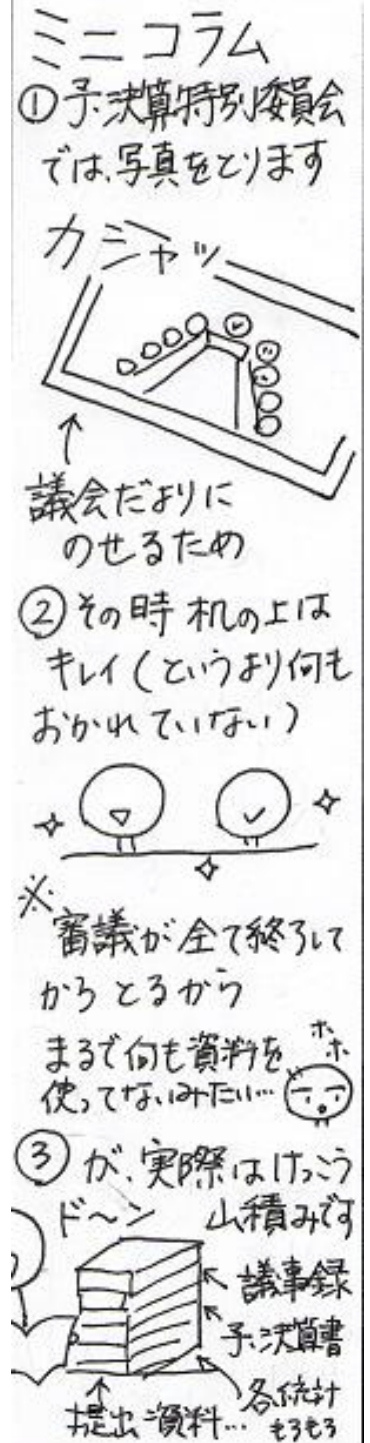 ミニコラム
①予・決算特別委員会
では、写真をとります
カシャッ
議会だよりに
のせるため
②その時 机の上は
キレイ(というより何も
おかれていない)
※審議が全て終了して
からとるから
まるで何も資料を
使ってないみたい…
ホホ
③が、実際はけっこう
山積みです
ド〜ン
議事録
予・決算書
各統計
もろもろ
提出資料…